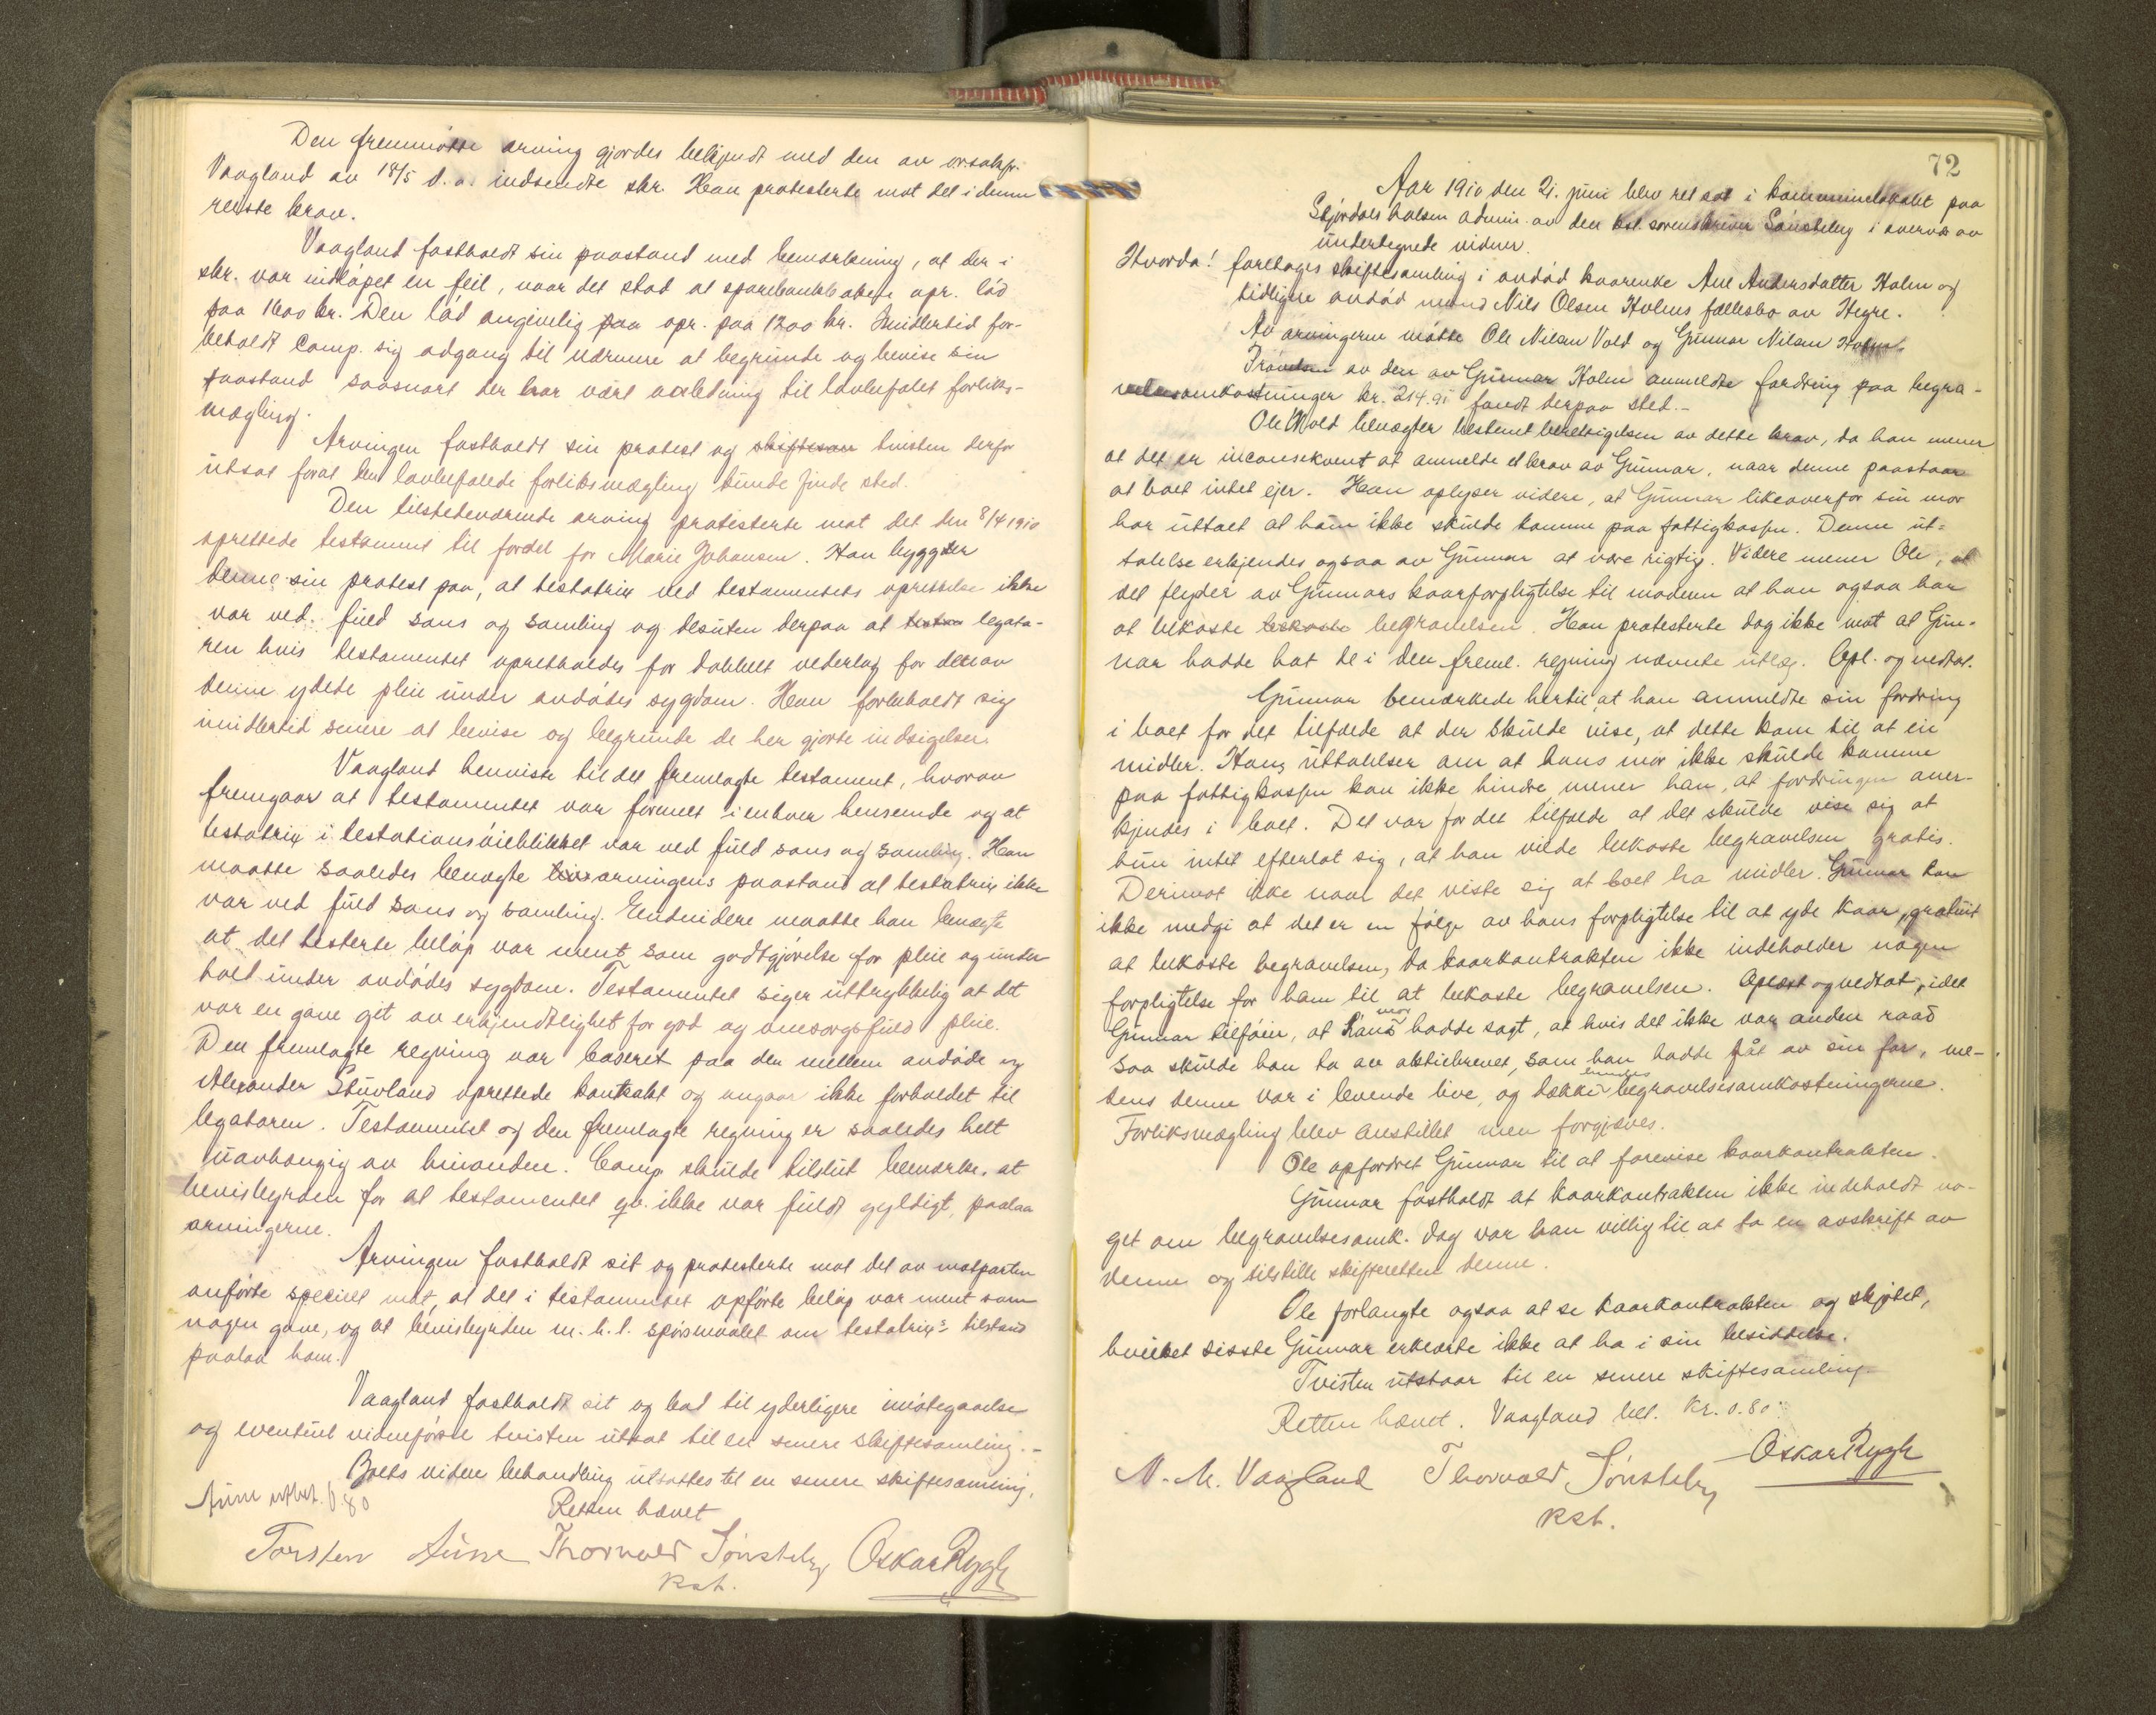 Den fremmøtte arving gjordes bekjendt med den av o.r.sakfr.
Vaagland av 18/5 d.a. indsendte skr. Han protesterte mot det i denne
reiste krav.
Vaagland fastholdt sin paastand med bemærkning, at der i
skr. var indløpet en feil, naar det stod at sparebankboken opr. lød
paa 1600 kr. Den lød angivelig paa opr. paa 1200 kr. Imidlertid for-
beholdt Comp. sig adgang til nærmere at begrunde og bevise sin
paastand saasnart der har vært anledning til lovbefalet forliks-
mægling.
Arvingen fastholdt sin protest og skiftesam tvisten derfor
utsat forat den lovbefalede forliksmægling kunde finde sted.
Den tilstedeværende arving protesterte mot det den 8/4 1910
oprettede testament til fordel for Marie Johansen. Han bygger
denne sin protest paa, at testatrix ved testamentets oprettelse ikke
var ved fuld sans og samling og desuten derpaa at legata-
ren hvis testamentet opretholdes for dobbelt vederlag for det av
denne ydede pleie under avdødes sygdom. Han forbeholdt sig
imidlertid senere at bevise og begrunde de her gjorte indsigelser.
Vaagland henviste til det fremlagte testament, hvorav
fremgaar at testamentet var formelt i enhver henseende og at
testatrix i testationsøieblikket var ved fuld sans og samling. Han
maatte saaledes benegte arvingens paastand at testatrix ikke
var ved fuld sans og samling. Endvidere maatte han benegte
at det testerte beløp var ment som godtgjørelse for pleie og under-
hold under avdødes sygdom. Testamentet siger uttrykkelig at det
var en gave git av erkjendtlighet for god og omsorgsfuld pleie.
Den fremlagte regning var baseret paa den mellem avdøde og
Alexander Stuvland oprettede kontrakt og angaar ikke forholdet til
legataren. Testamentet og den fremlagte regning er saaledes helt
uavhængig av hinanden. Comp. skulde tilslut bemærke, at
bevisbyrden for at testamentet gr. ikke var fuldt gyldigt, paalaa
arvingerne.
Arvingen fastholdt sit og protesterte mot det av motparten
anførte specielt mot, at det i testamentet opførte beløp var ment som
nogen gave, og at bevisbyrden m.h.t. spørsmaalet om testatrix's tilstand
paalaa ham.
Vaagland fastholdt sit og bad til yderligere imøtegaaelse
og eventuel vidneførsel tvisten utsat til en senere skiftesamling.-
Boets videre behandling utsattes til en senere skiftesamling.
Aune utbet. 0.80
Retten hævet
Torsten Aune Thorvald Sønsteby Oskar Rygh
kst.
72
Aar 1910 den 21. juni blev ret sat i kommunelokalet paa
Stjørdalshalsen admin. av den kst. sorenskriver Sønsteby i overvær av
undertegnede vidner.
Hvorda! foretages skiftesamling i avdød kaarenke Ane Andersdatter Holm og
tidligere avdød mand Nils Olsen Holms fællesbo av Hegre.
Av arvingerne møtte Ole Nilsen Vold og Gunnar Nilsen Holm.
Prøvelsen av den av Gunnar Holm anmeldte fordring paa begra-
velsesomkostninger kr. 214.91 fandt derpaa sted.-
Ole Vold benegter bestemt berettigelsen av dette krav, da han mener
at det er inconsekvent at anmelde et krav av Gunnar, naar denne paastaar
at boet intet ejer. Han oplyser videre, at Gunnar likeoverfor sin mor
har uttalt at hun ikke skulde komme paa fattigkassen. Denne ut-
talelse erkjendes ogsaa av Gunnar at være rigtig. Videre mener Ole, at
det flyder av Gunnars kaarforpligtelse til moderen at han ogsaa har
at bekoste bekoste begravelsen. Han protesterte dog ikke mot at Gun-
nar hadde hat de i den freml. regning nævnte utlæg. Opl. og vedtat.
Gunnar bemærkede hertil, at han anmeldte sin fordring
i boet for det tilfælde at der skulde vise, at dette kom til at eie
midler. Hans uttalelser om at hans mor ikke skulde komme
paa fattigkassen kan ikke hindre mener han, at fordringen aner-
kjendes i boet. Det var for det tilfælde at det skulde vise sig at
hun intet efterlot sig, at han vilde bekoste begravelsen gratis.
Derimot ikke naar det viste sig at boet ha midler. Gunnar kan
ikke medgi at det er en følge av hans forpligtelse til at yde kaar, gratuit
at bekoste begravelsen, da kaarkontrakten ikke indeholder nogen
forpligtelse for ham til at bekoste begravelsen. Oplæst og vedtat, idet
Gunnar tilføier, at hans mor hadde sagt, at hvis det ikke var anden raad
saa skulde han ta av aktiebrevet, som han hadde fåt av sin far, me-
dens denne var i levende live, og dække hendes begravelsesomkostningerne.
Forliksmægling blev anstillet men forgjæves.
Ole opfordret Gunnar til at forevise kaarkontrakten.
Gunnar fastholdt at kaarkontrakten ikke indeholdt no-
get om begravelsesomk. dog var han villig til at ta en avskrift av
denne og tilstille skifteretten denne.
Ole forlangte ogsaa at se kaarkontrakten og skjøtet,
hvilket sisste Gunnar erklærte ikke at ha i sin besiddelse.
Tvisten utstaar til en senere skiftesamling.
Retten hævet. Vaagland bet. Kr. 0.80.
N. M. Vaagland Thorvald Sønsteby Oskar Rygh
kst.